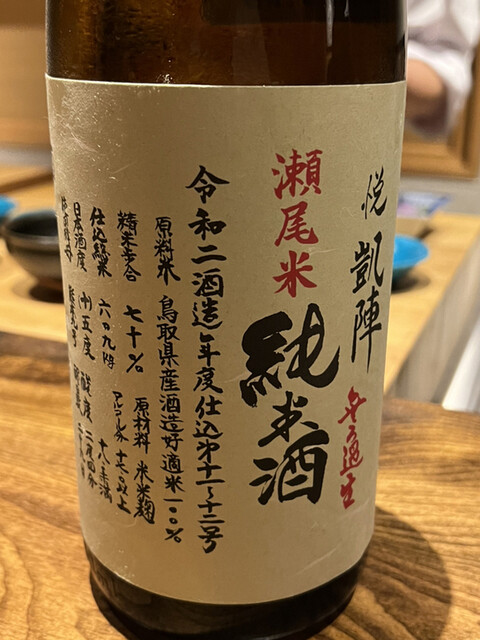 悦 凱陣
無ろ過生
瀬尾米
純米酒
令和二酒造年度仕込第十一〜十二号
原料米 鳥取県産酒造好適米一〇〇%
精米歩合 七十%
原材料 米米麹
アルコール分 十七以上
十八未満
仕込総米 六〇九瓩
日本酒度 (十)五度
酸度